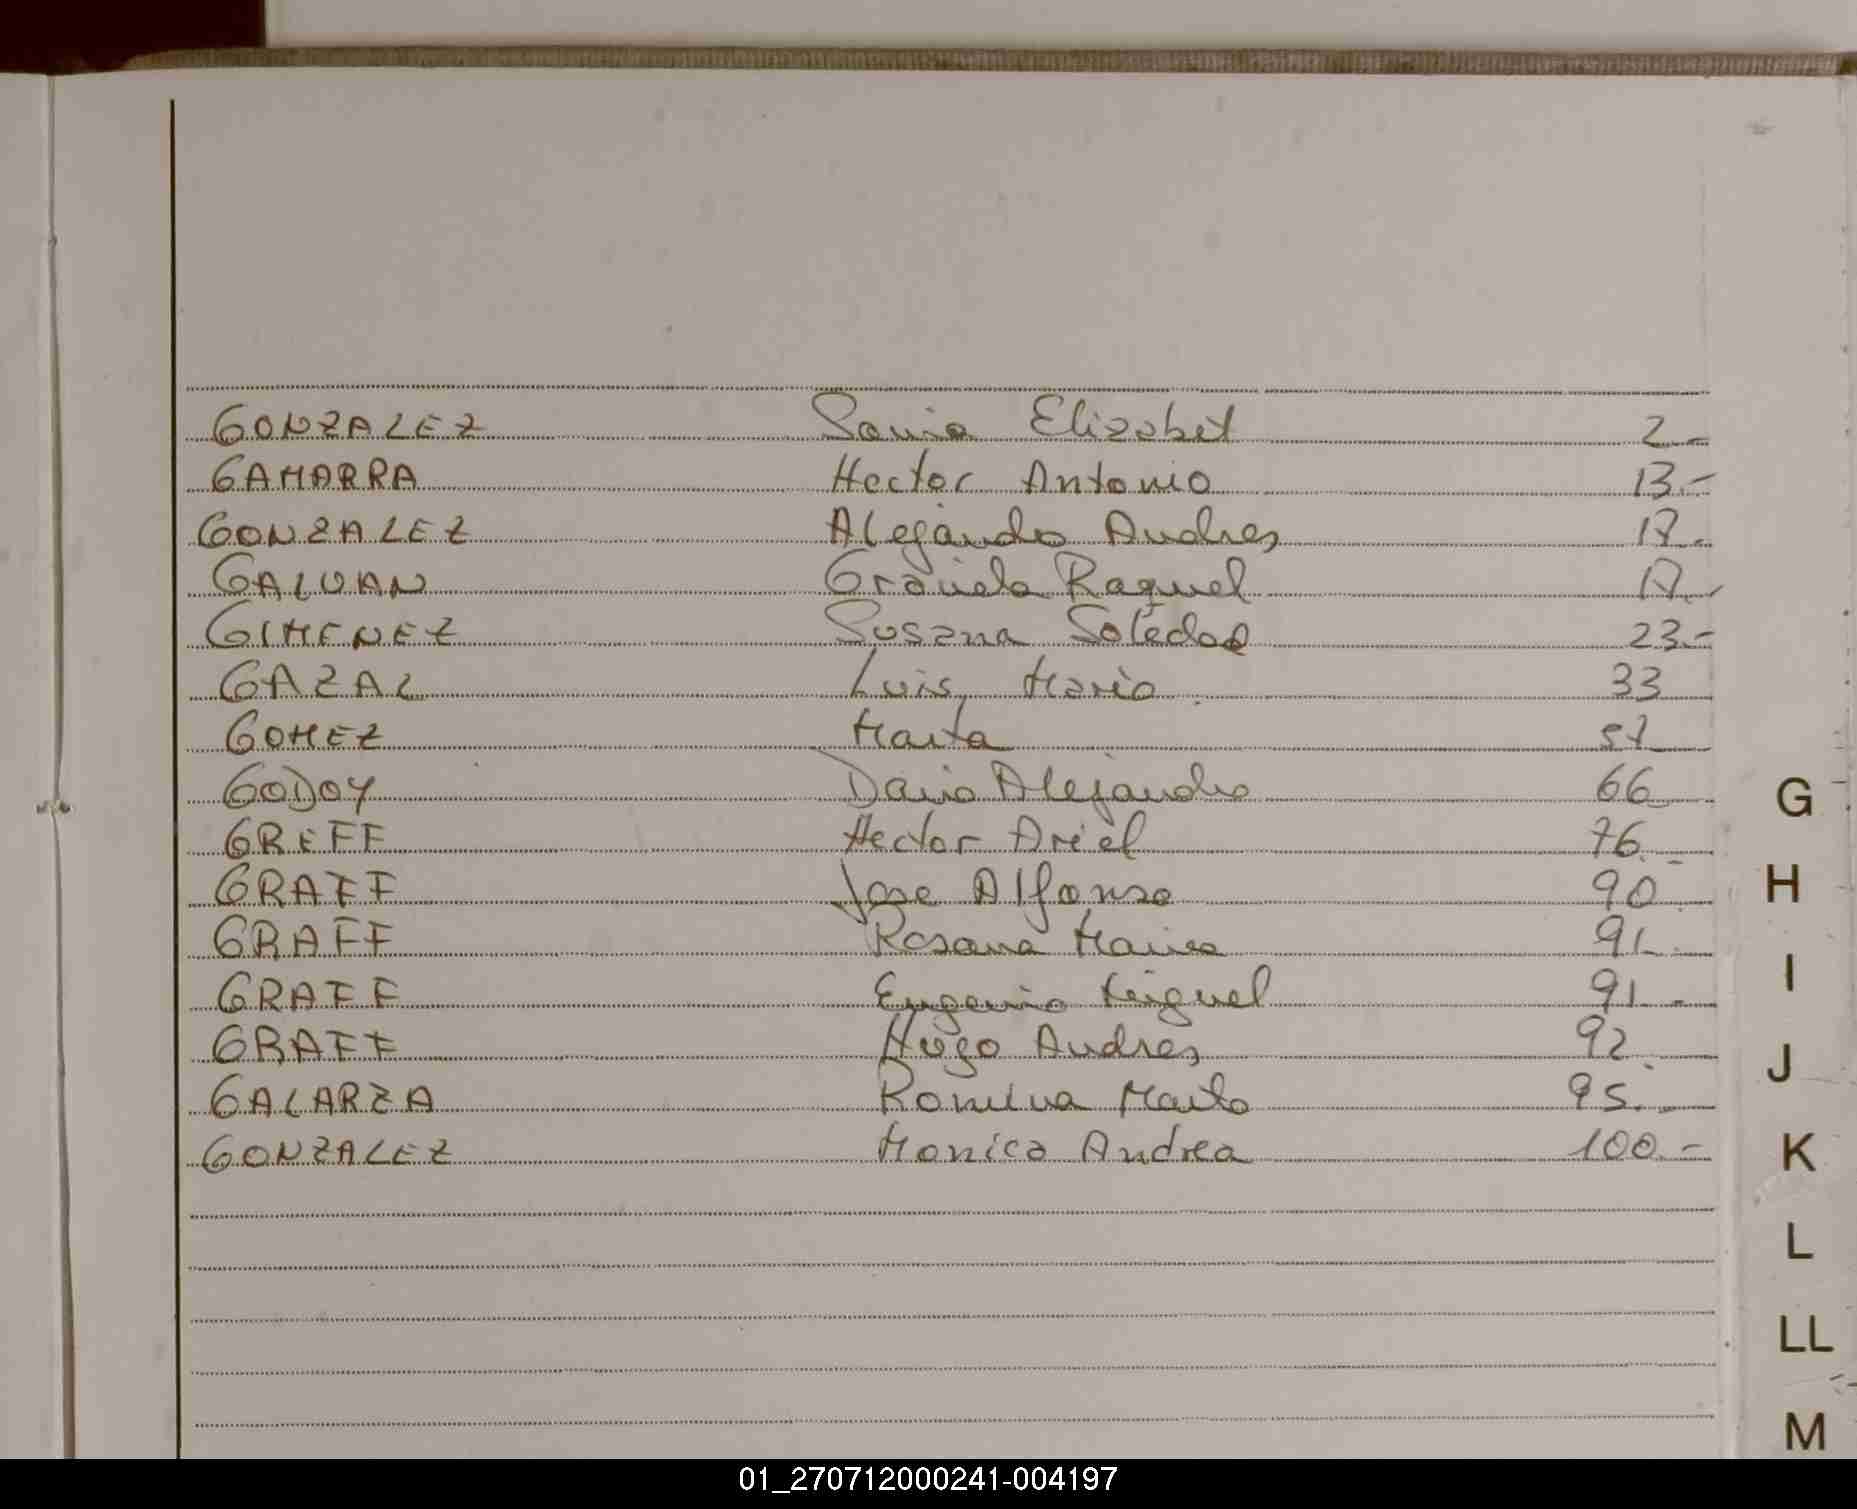 GONZALEZ Sonia Elizabet 2.-
GAMARRA Hector Antonio 13.-
GONZALEZ Alejandro Andres 17.-
GALVAN Graciela Raquel 17.-
GIMENEZ Susana Soledad 23.-
GAZAL Luis Mario 33
GOMEZ Marta 57
GODOY Dario Alejandro 66
GREFF Hector Ariel 76.-
GRAFF Jose Alfonso 90.
GRAFF Rosana Maria 91.-
GRAFF Eugenio Miguel 91.-
GRAFF Hugo Andres 92.-
GALARZA Romina Marta 95.-
GONZALEZ Monica Andrea 100.-
G
H
I
J
K
L
LL
M
01_270712000241-004197